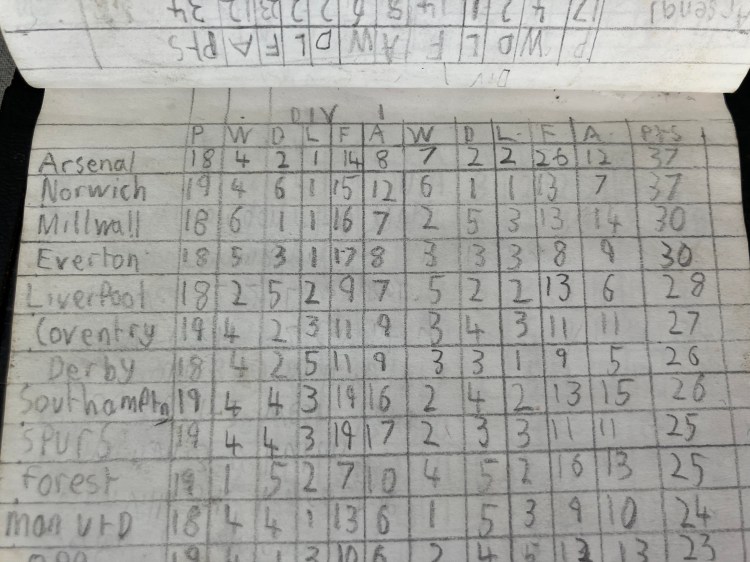 Arsenal 17 4 2 1 14 8 6 2 2 23 12 34
P W D L F A W D L F A Pts
DIV
DIV 1
P W D L F A W D L F A Pts
Arsenal 18 4 2 1 14 8 7 2 2 26 12 37
Norwich 19 4 6 1 15 12 6 1 1 13 7 37
Millwall 18 6 1 1 16 7 2 5 3 13 14 30
Everton 18 5 3 1 17 8 3 3 3 8 9 30
Liverpool 18 2 5 2 9 7 5 2 2 13 6 28
Coventry 19 4 2 3 11 9 3 4 3 11 11 27
Derby 18 4 2 5 11 9 3 3 1 9 5 26
Southamptn 19 4 4 3 19 16 2 4 2 13 15 26
SPURS 19 4 4 3 19 17 2 3 3 11 11 25
Forest 19 1 5 2 7 10 4 5 2 16 13 25
Man UTD 18 4 4 1 13 6 1 5 3 9 10 24
QPR 19 4 1 3 10 6 2 4 5 13 23